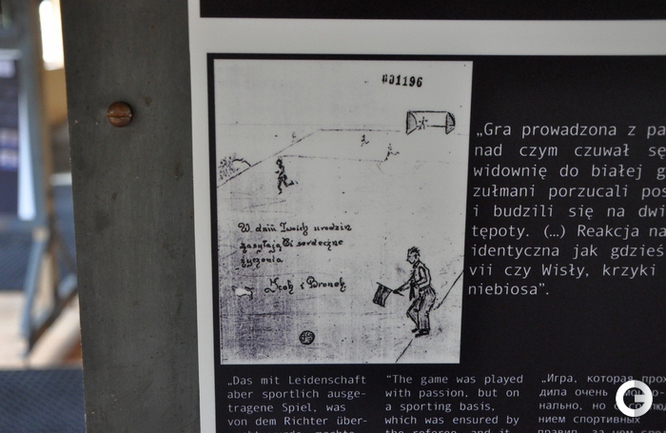 #01196
W dniu Twoich urodzin
zasyłają Ci serdeczne
życzenia
i Bronek
„Gra prowadzona z pa
nad czym czuwał sę
widownię do białej g
zułmani porzucali pos
i budzili się na dwi
tępoty. (…) Reakcja na
identyczna jak gdzieś
vii czy Wisły, krzyki
niebiosa”.
„Das mit Leidenschaft
aber sportlich ausge-
tragene Spiel, was
von dem Richter über-
“The game was played
with passion, but on
a sporting basis,
which was ensured by
the referee, and it
„Игра, которая прох
дила очень
нально, но
нием спортивных